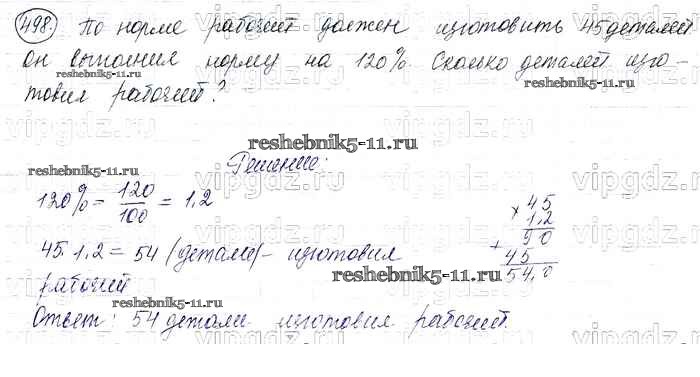 498. По норме рабочий должен изготовить 45 деталей.
он выполнил норму на 120%. Сколько деталей изго-
reshebnik5-11.ru
reshebnik5-11.ru
товил рабочий?
vipgdz.ru
vipgdz.ru
reshebnik5-11.ru
Решение:
reshebnik5-11.ru
vipgdz.ru
vipgdz.ru
120% = 120/100 = 1,2
× 45
1,2
90
+ 45
54,0
45·1,2 = 54 (детали) - изготовил
рабочий
reshebnik5-11.ru
reshebnik5-11.ru
Ответ: 54 детали изготовил рабочий.
vipgdz.ru
vipgdz.ru